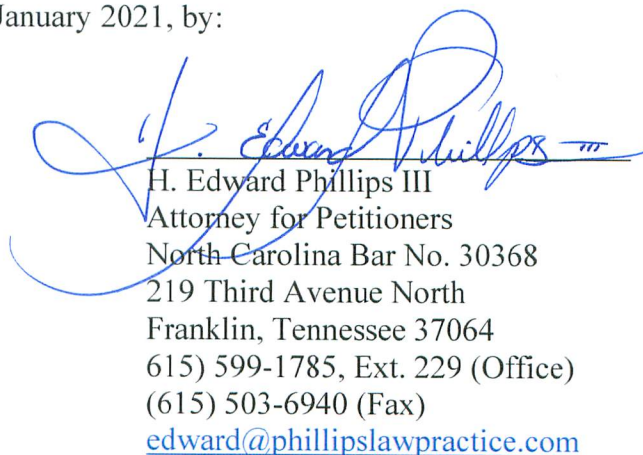 January 2021, by:
H. Edward Phillips III
H. Edward Phillips III
Attorney for Petitioners
North Carolina Bar No. 30368
219 Third Avenue North
Franklin, Tennessee 37064
615) 599-1785, Ext. 229 (Office)
(615) 503-6940 (Fax)
edward@phillipslawpractice.com